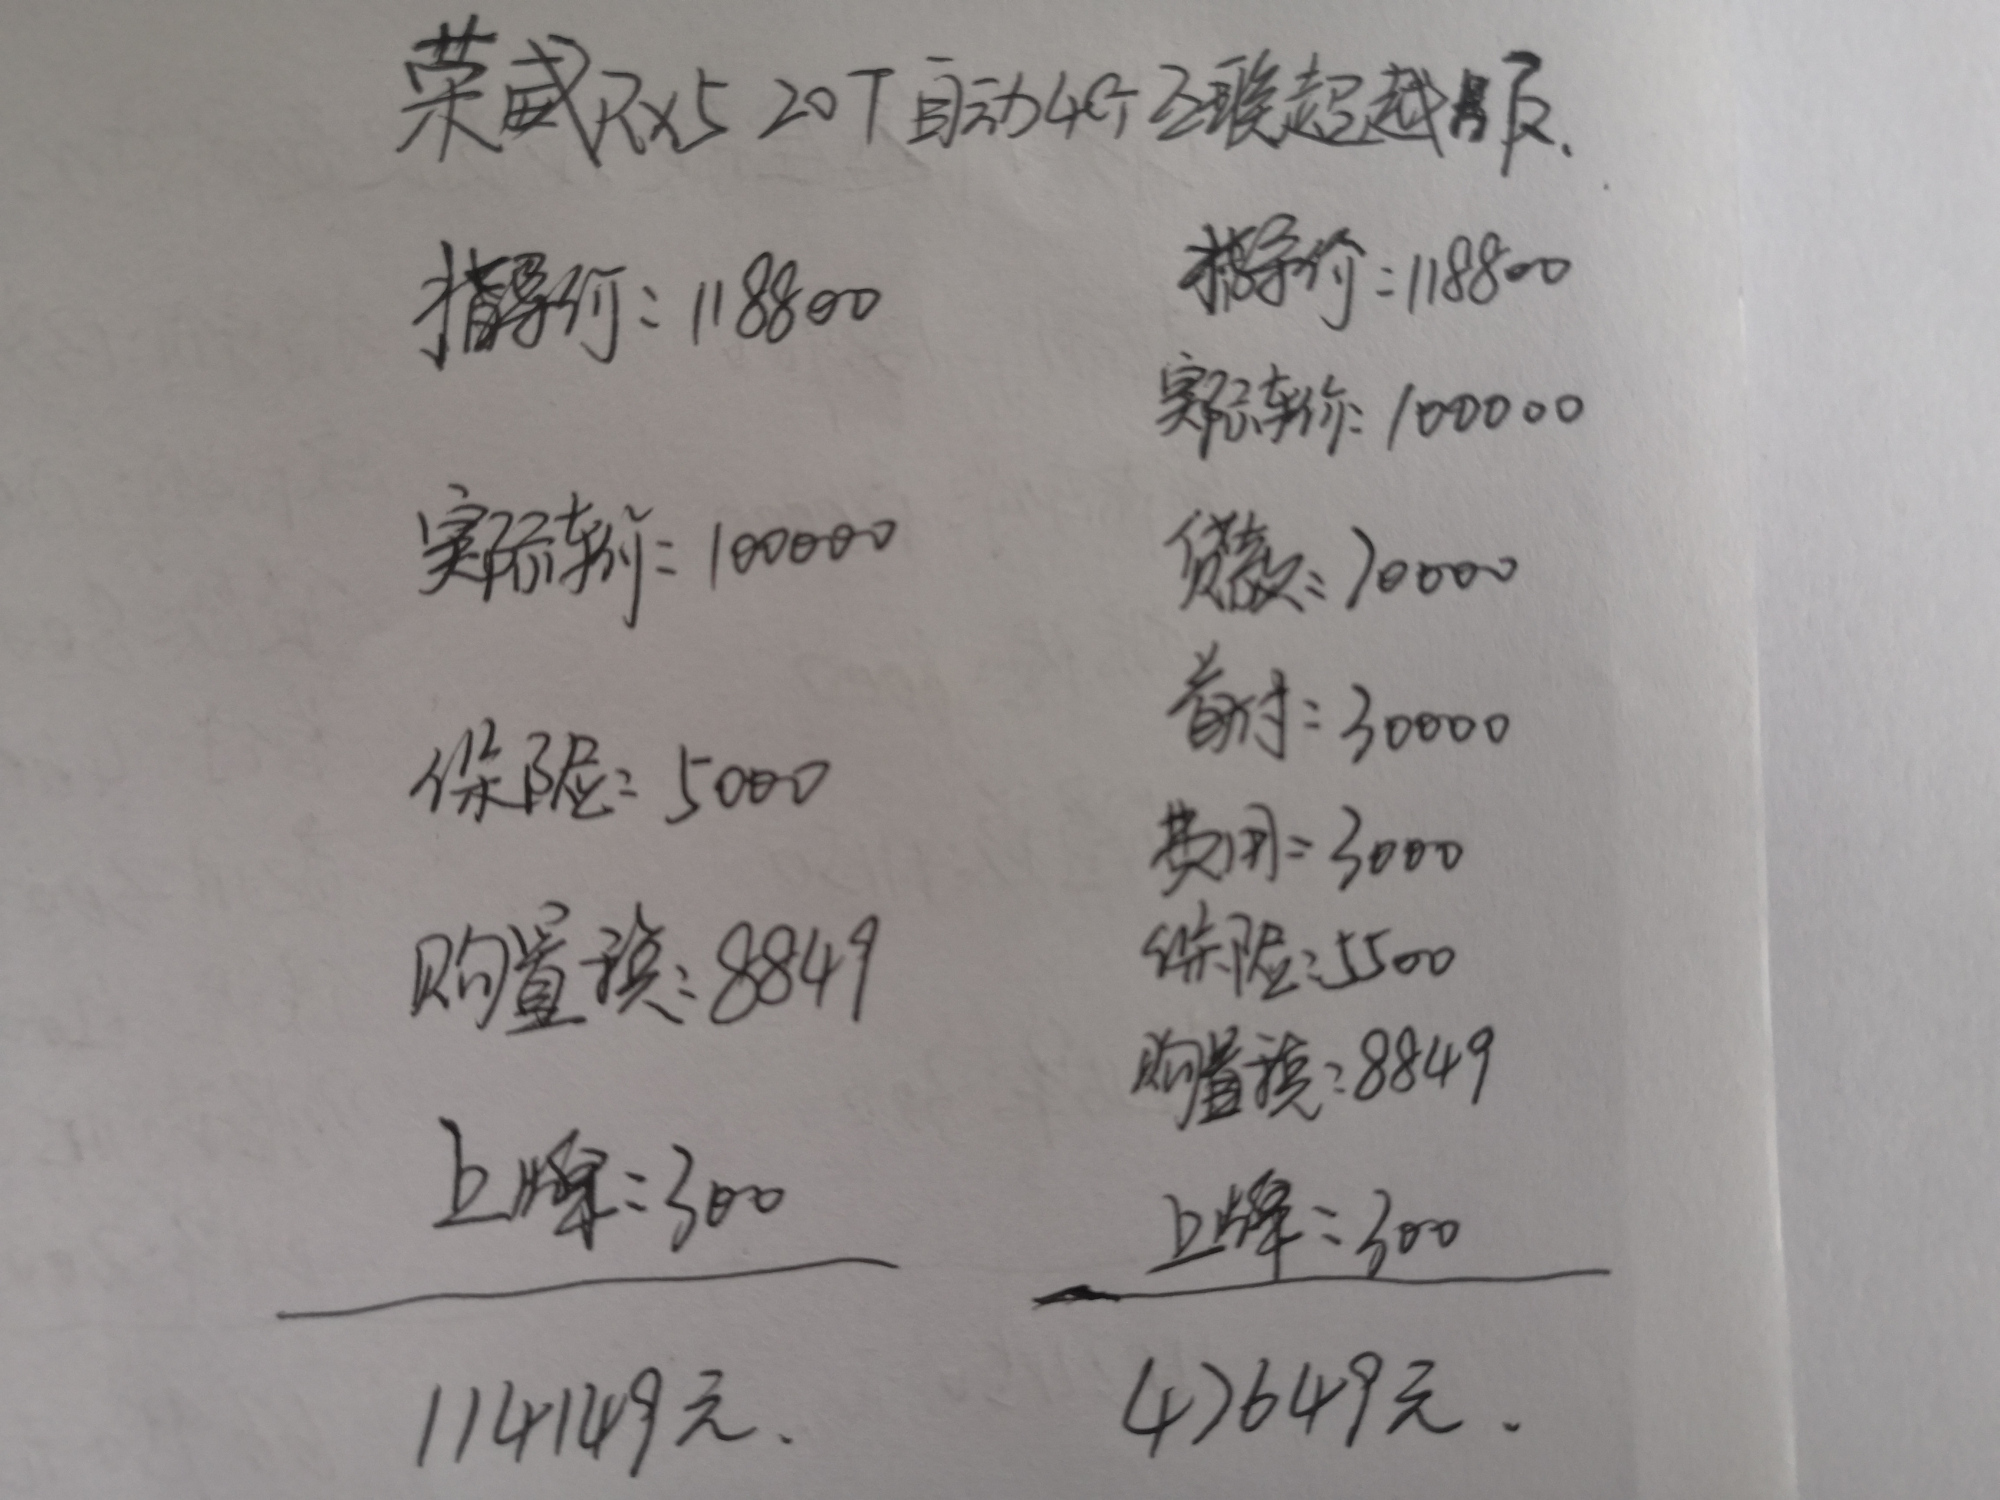 荣威Rx5 20T自动4G互联超越版.
指导价:118800
实际车价:100000
保险:5000
购置税:8849
上牌:300
114149元.
指导价:118800
实际车价:100000
贷款:70000
首付:30000
费用:3000
保险:5500
购置税:8849
上牌:300
47649元.